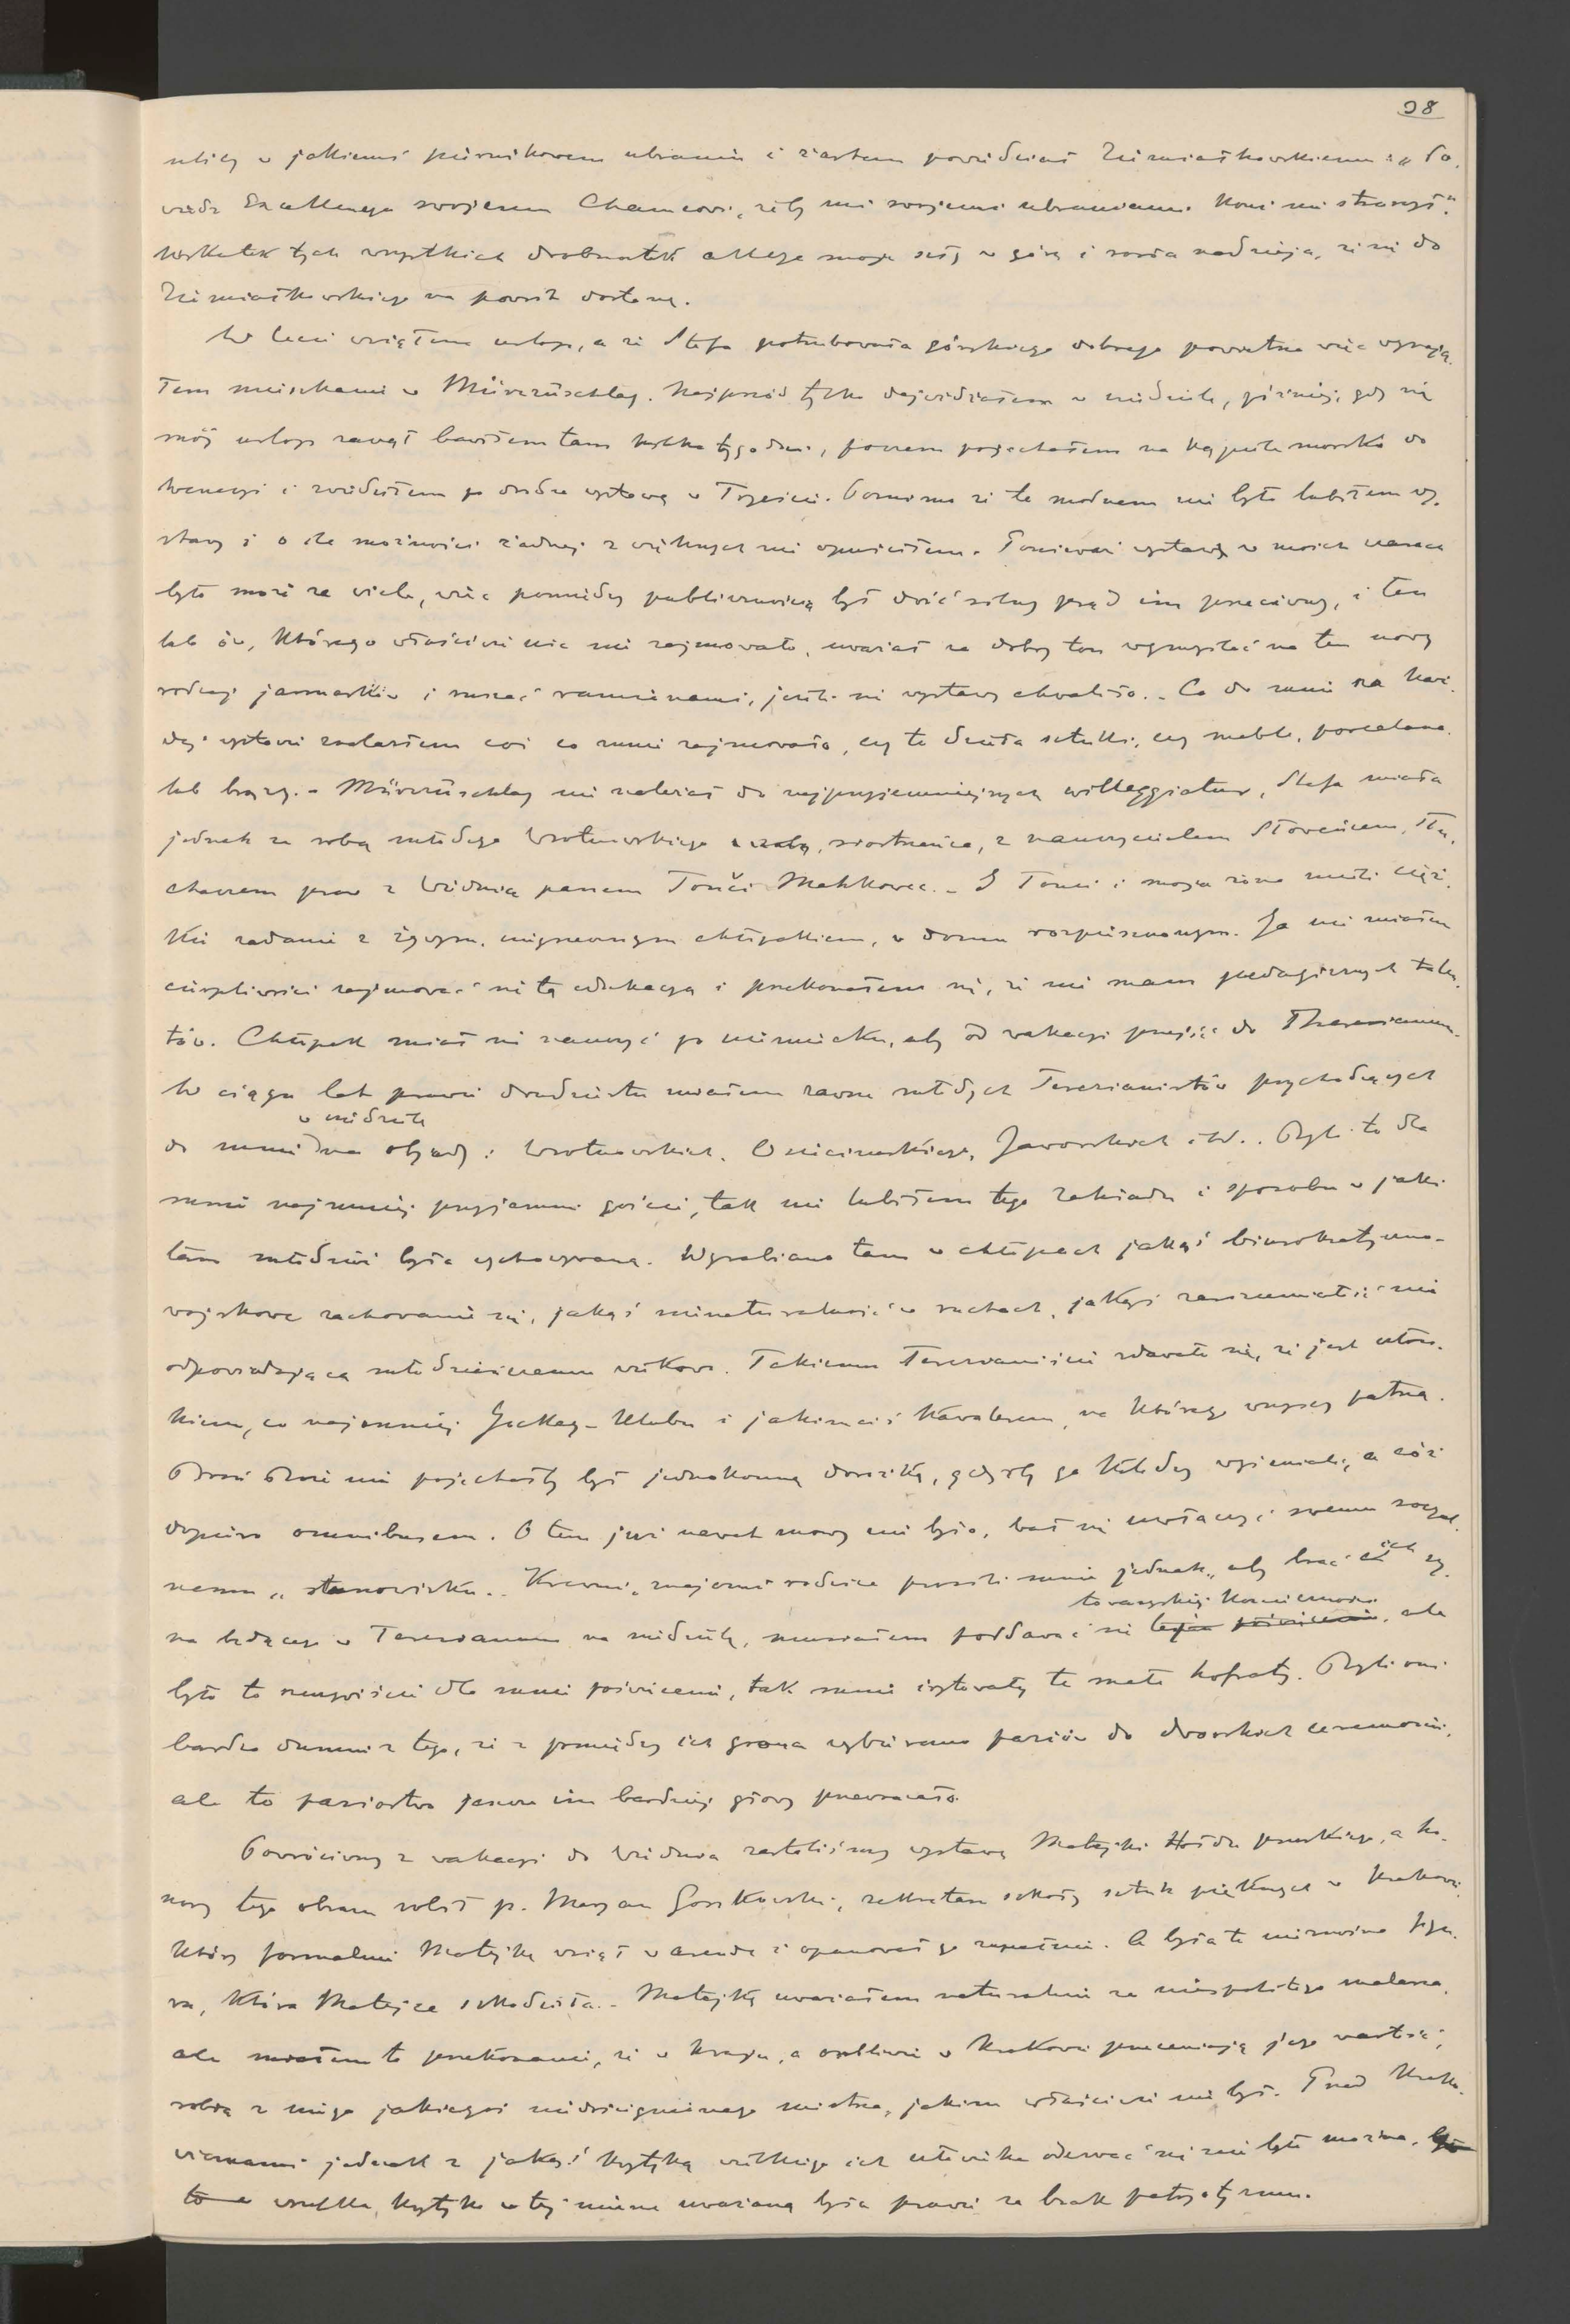 98
ulicy w jakiemś pstrokatem ubraniu i żartem powiedział Ziemiałkowskiemu: „Po-
wiedz Excellencya swojemu Chamcowi, żeby mi swojemi ubraniami koni nie straszył".
Wskutek tych wszystkich drobnostek akcye moje szły w górę i rosła nadzieja, że się do
Ziemiałkowskiego na powrót dostanę.
W lecie wziąłem urlop, a że Stefa potrzebowała górskiego dobrego powietrza więc wynają-
łem mieszkanie w Mürzzuschlag. Najprzód tylko dojeżdżałem w niedziele, później, gdy się
mój urlop zaczął bawiłem tam kilka tygodni, poczem pojechałem na kąpiele morskie do
Wenecyi i zwiedziłem po drodze wystawę w Tryeście. Pomimo że to modnem nie było lubiłem wy-
stawy i o ile możności żadnej z większych nie opuściłem. Ponieważ wystaw w moich czasach
było może za wiele, więc pomiędzy publicznością był dość silny prąd im przeciwny, i ten
lub ów, którego właściwie nic nie zajmowało, uważał za dobry ton wymyślać na ten nowy
rodzaj jarmarków i ruszać ramionami, jeżeli się wystawy chwaliło. - Co do mnie na każ-
dej wystawie znalazłem coś co mnie zajmowało, czy to dzieła sztuki, czy meble, porcelana
lub brązy. - Mürzzuschlag nie należał do najprzyjemniejszych willeggiatur, Stefa miała
jednak ze sobą młodego Wrotnowskiego, siostrzeńca, z nauczycielem Słoweńcem, słu-
chaczem praw z Wiednia panem Tonči Mahkovec. - I Tonci i moja żona mieli cięż-
kie zadanie z żywym, chłopakiem, w domu rozpieszczonym. Ja nie miałem
cierpliwości zajmować się tą edukacyą i przekonałem się, że nie mam pedagogicznych talen-
tów. Chłopak miał się nauczyć po niemiecku, aby od wakacyi przejść do Theresianum.
W ciągu lat prawie dwudziestu miałem zawsze młodych Terezianistów przychodzących
w niedziele
do mnie na obiady: Wrotnowskich, Jaworskich itd.. Byli to dla
mnie najmniej przyjemni goście, tak nie lubiłem tego zakładu i sposobu w jaki
tam młodzież była wychowywana. Wyrabiano tam w chłopcach jakąś biurokratyczno-
wojskowe zachowanie się, jakąś nienaturalność w ruchach, jakąś zarozumiałość nie
odpowiadającą młodzieńczemu wiekowi. Takiemu Terezianiście zdawało się, że jest człon-
kiem, co najmniej Jockey-Klubu i jakimsiś kawalerem, na którego wszyscy patrzą.
Broń Boże nie pojechałby był jednokonną dorożką, gdyż by go koledzy wyśmiali, a cóż
dopiero omnibusem. O tem już nawet mowy nie było, bał się uwłaczyć swemu socyal-
nemu „stanowisku". Krewni, znajomi rodzice prosili mnie jednak, aby brać ich sy-
towarzyskiej konieczności
na będącego w Terezianum na niedzielę, musiałem poddawać się , ale
było to rzeczywiście dla mnie poświęcenie, tak mnie irytowały te małe hofraty. Byli oni
bardzo dumni z tego, że z pomiędzy ich grona wybierano paziów do dworskich ceremonii,
ale to paziostwo jeszcze im bardziej głowy przewracało.
Powróciwszy z wakacyi do Wiednia zastaliśmy wystawę Matejki Hołdu pruskiego, a ho-
nory tego obrazu robił p. Maryan Gorzkowski, sekretarz szkoły sztuk pięknych w Krakowie,
który formalnie Matejkę wziął w arendę i opanował go zupełnie. A była to nieznośna figu-
ra, która Matejce szkodziła. - Matejkę uważałem naturalnie za niepospolitego malarza,
ale miałem to przekonanie, że w kraju, a osobliwie w Krakowie przeceniają jego wartość,
robią z niego jakiegoś niedoścignionego mistrza, jakim właściwie nie był. Przed Krako-
wianami jednak z jakąś krytyką wielkiego ich człowieka odezwać się nie było można,
wszelka krytyka w tej mierze uważaną była prawie za brak patryotyzmu.